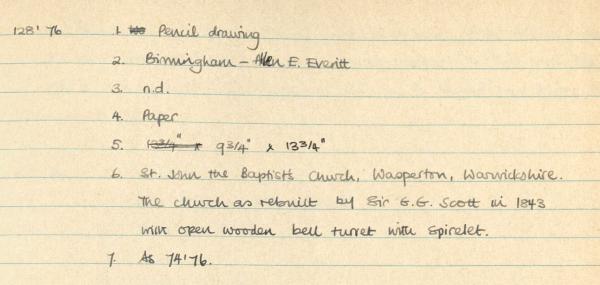 128'76 1. Pencil drawing
2. Birmingham – Allen E. Everitt
3. n.d.
4. Paper
5. 13 3/4" x 9 3/4" x 13 3/4"
6. St. John the Baptist's Church, Wasperton, Warwickshire.
The church as rebuilt by Sir G.G. Scott in 1843
with open wooden bell turret with spirelet.
7. As 74'76.